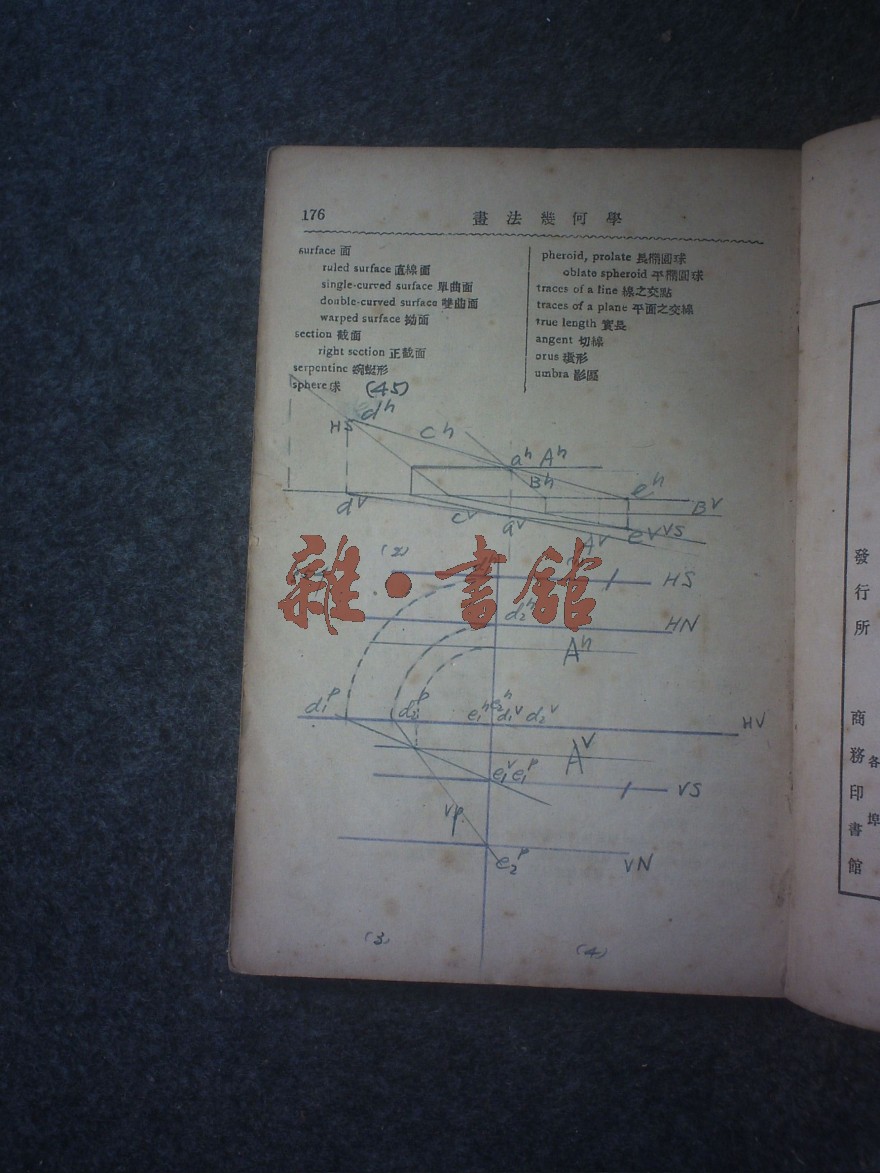 176
畫法幾何學
surface 面
ruled surface 直線面
single-curved surface 單曲面
double-curved surface 雙曲面
warped surface 拗面
section 截面
right section 正截面
serpentine 蜿蜒形
sphere 球
pheroid, prolate 長橢圓球
oblate spheroid 平橢圓球
traces of a line 線之交點
traces of a plane 平面之交線
true length 實長
angent 切線
orus 環形
umbra 影區
(45)
HS
dʰ
cʰ
aʰ Aʰ
Bʰ
eʰ
dᵛ
cᵛ
aᵛ
Aᵛ
Bᵛ
eᵛ VS
(2)
雜·書館
HS
d₂ʰ
HN
Aʰ
d₁ᵖ
d₂ᵖ
e₁ʰ e₂ʰ d₁ᵛ d₂ᵛ
HV
Aᵛ
e₁ᵛ e₁ᵖ
VS
VP
e₂ᵖ
VN
(3)
(4)
發行所
商務印書館
各埠